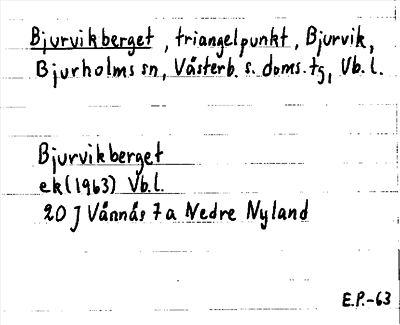 Bjurvikberget, triangelpunkt, Bjurvik,
Bjurholms sn, Västerb. s. doms. tg, Vb. l.
Bjurvikberget
ek (1963) Vb. l.
20 J Vännäs 7 a Nedre Nyland
E.P.-63